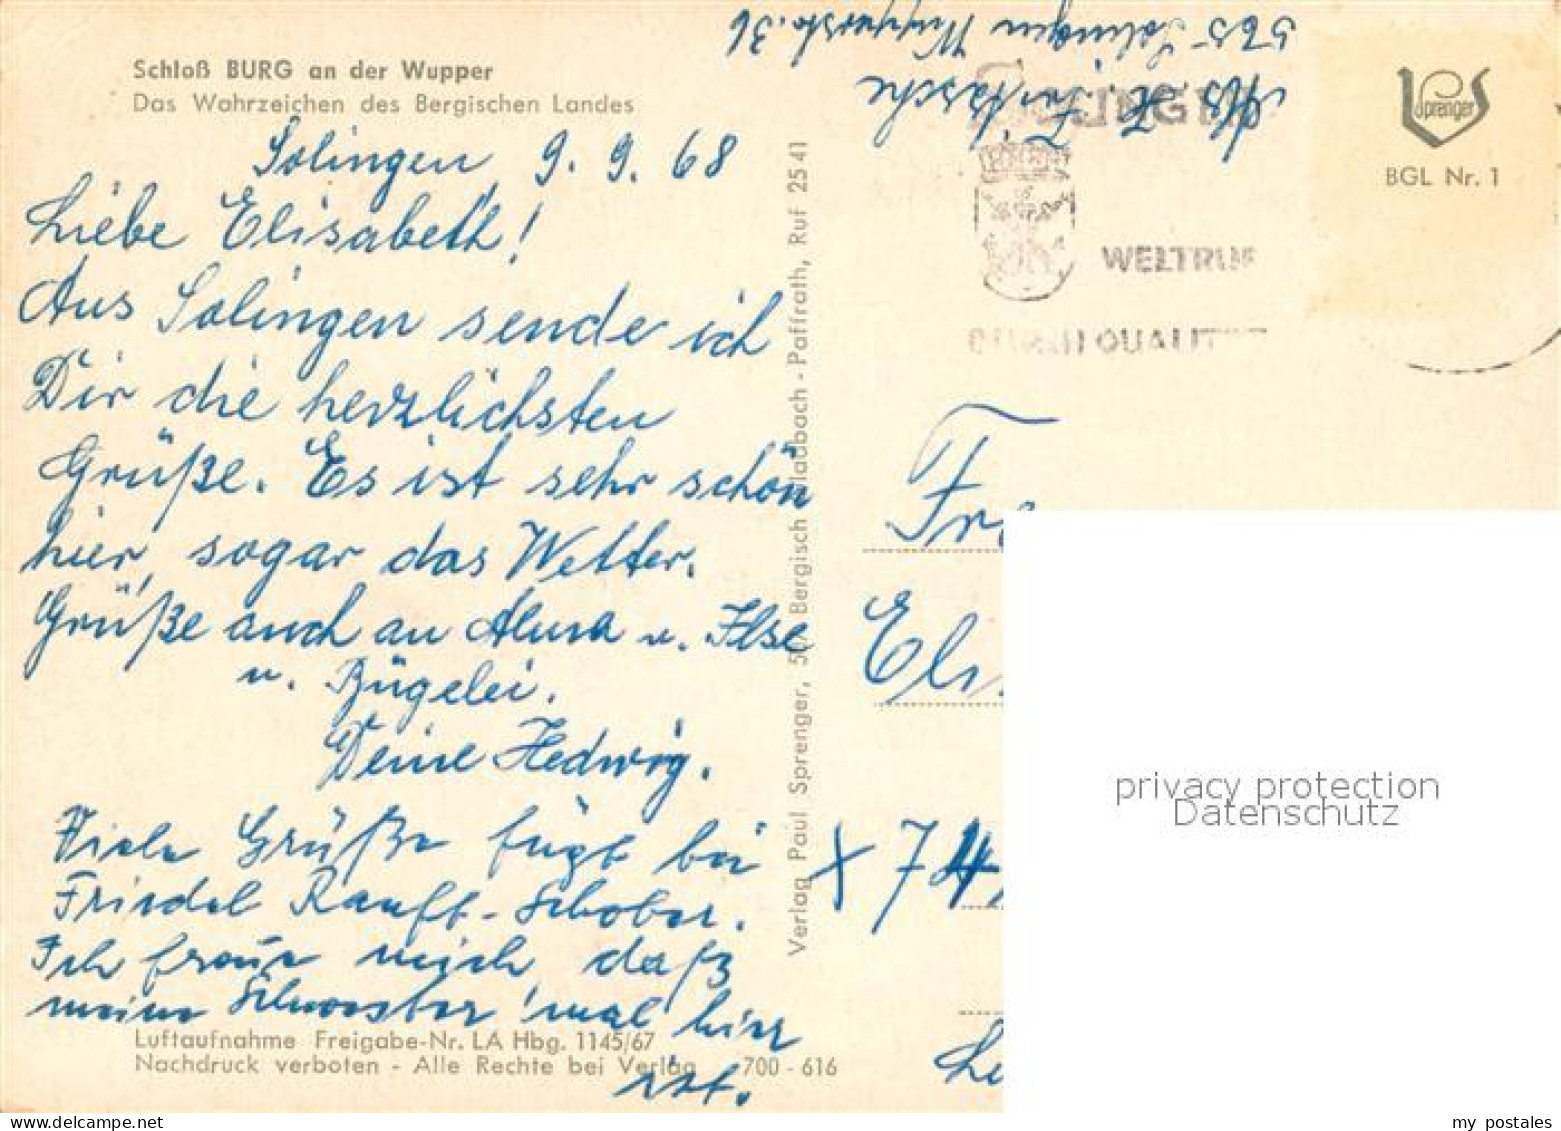 Schloß BURG an der Wupper
Das Wahrzeichen des Bergischen Landes
Solingen, 9. 9. 68
Liebe Elisabeth!
Aus Solingen sende ich
Dir die herzlichsten
Grüße. Es ist sehr schön
hier, sogar das Wetter.
Grüße auch an Alma u. Ilse
u. Bügelei.
Deine Hedwig.
Viele Grüße fügt bei
Friedel Rauff-Schober.
Ich freue mich, daß
meine Schwester 'mal hier
ist.
Luftaufnahme Freigabe-Nr. LA Hbg. 1145/67
Nachdruck verboten - Alle Rechte bei Verlag 700 - 616
Verlag Paul Sprenger, Bergisch Gladbach - Paffrath, Ruf 25 41
Abs. H.
565 Solingen Wupperstr. 36
SOLINGEN
WELTRUF
DURCH QUALIT
Sprenger
BGL Nr. 1
Fr
Elis
x 74
privacy protection
Datenschutz
my postales